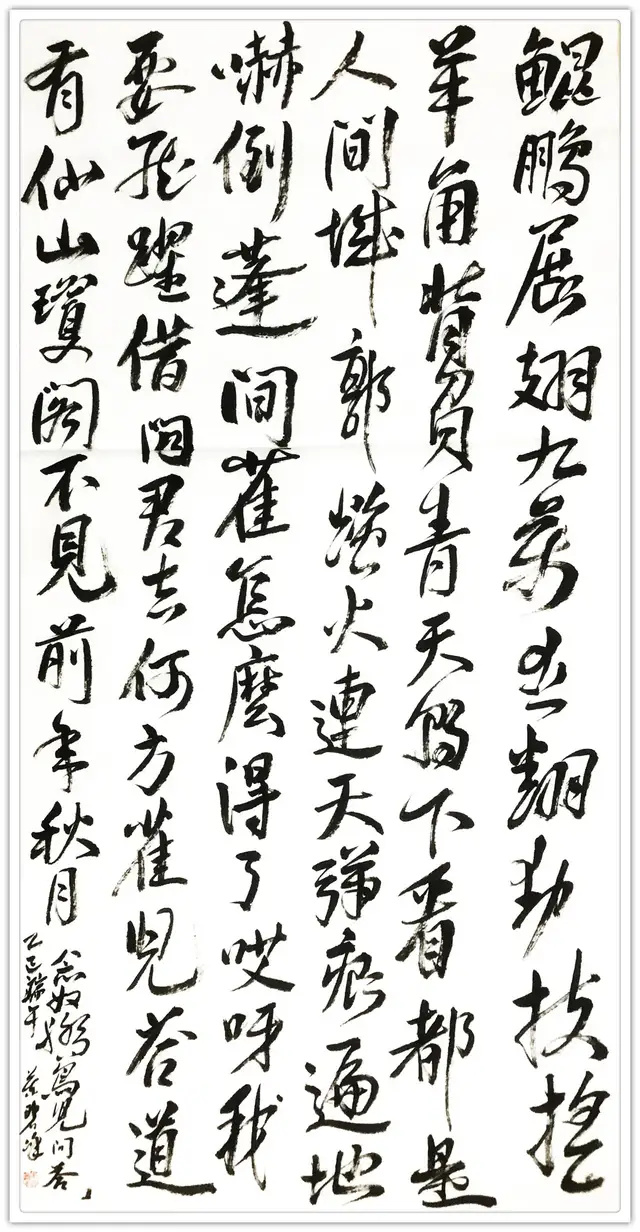 鯤鵬展翅九萬里翻動扶搖
羊角背負青天朝下看都是
人間城郭炮火連天彈痕遍地
嚇倒蓬間雀怎麼得了哎呀我
要飛躍借問君去何方雀兒答道
有仙山瓊閣不見前年秋月
念奴嬌鳥兒问答
乙巳端午